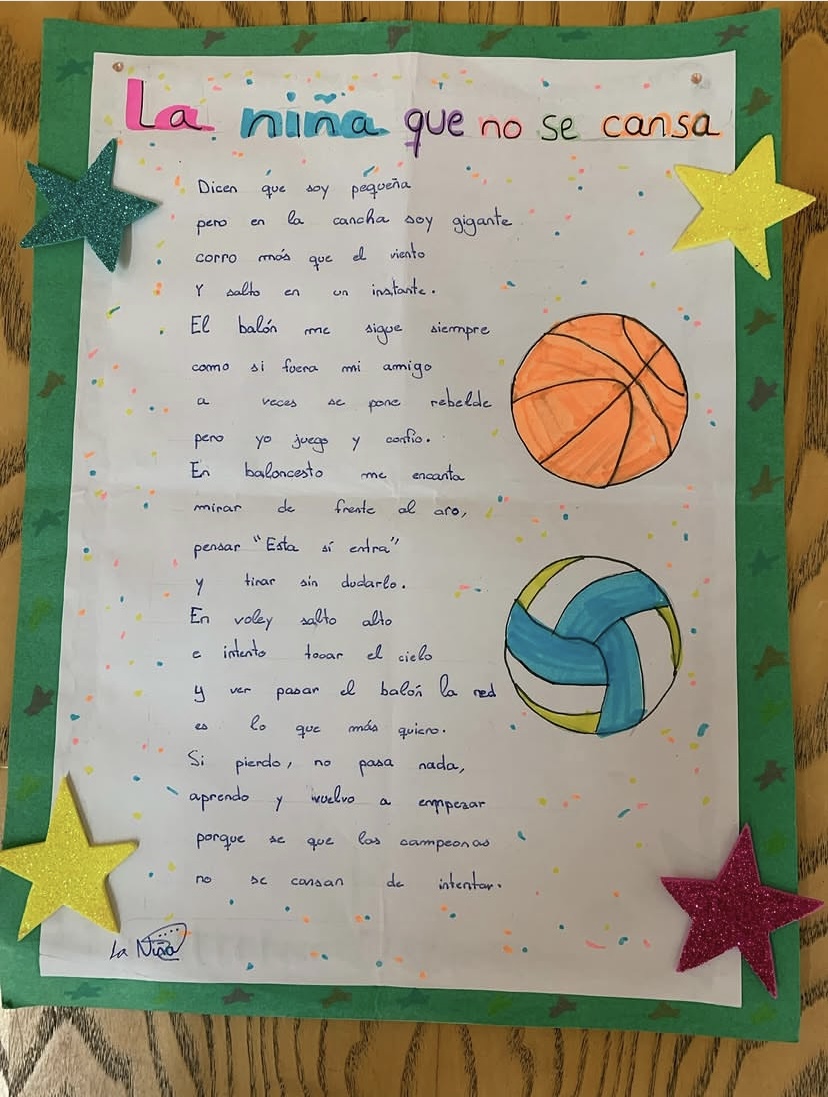 La niña que no se cansa
Dicen que soy pequeña
pero en la cancha soy gigante
corro más que el viento
Y salto en un instante.
El balón me sigue siempre
como si fuera mi amigo
a veces se pone rebelde
pero yo juego y confío.
En baloncesto me encanta
mirar de frente al aro,
pensar "Esta sí entra"
y tirar sin dudarlo.
En voley salto alto
e intento tocar el cielo
y ver pasar el balón la red
es lo que más quiero.
Si pierdo, no pasa nada,
aprendo y vuelvo a empezar
porque se que las campeonas
no se cansan de intentar.
La Niña